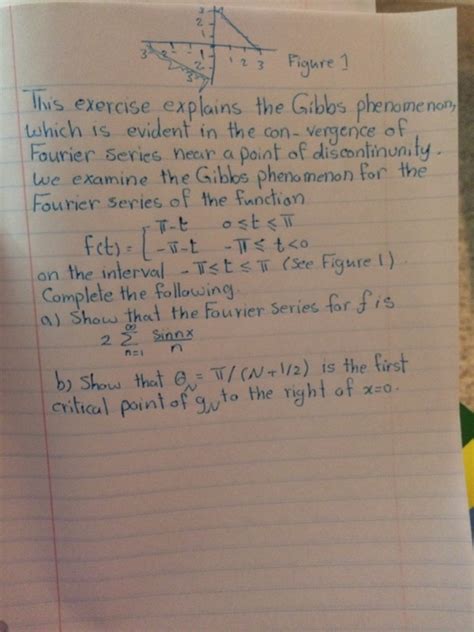 Figure 1
This exercise explains the Gibbs phenomenon,
which is evident in the con-vergence of
Fourier series near a point of discontinunity.
we examine the Gibbs phenomenon for the
Fourier series of the function
f(t) = { π-t 0≤t≤π
-π-t -π≤t<0
on the interval -π≤t≤π (see Figure 1).
Complete the following.
a) Show that the Fourier Series for f is
2 ∞Σn=1 sinnx/n
b) Show that θN = π/(N+1/2) is the first
critical point of gN to the right of x=0.